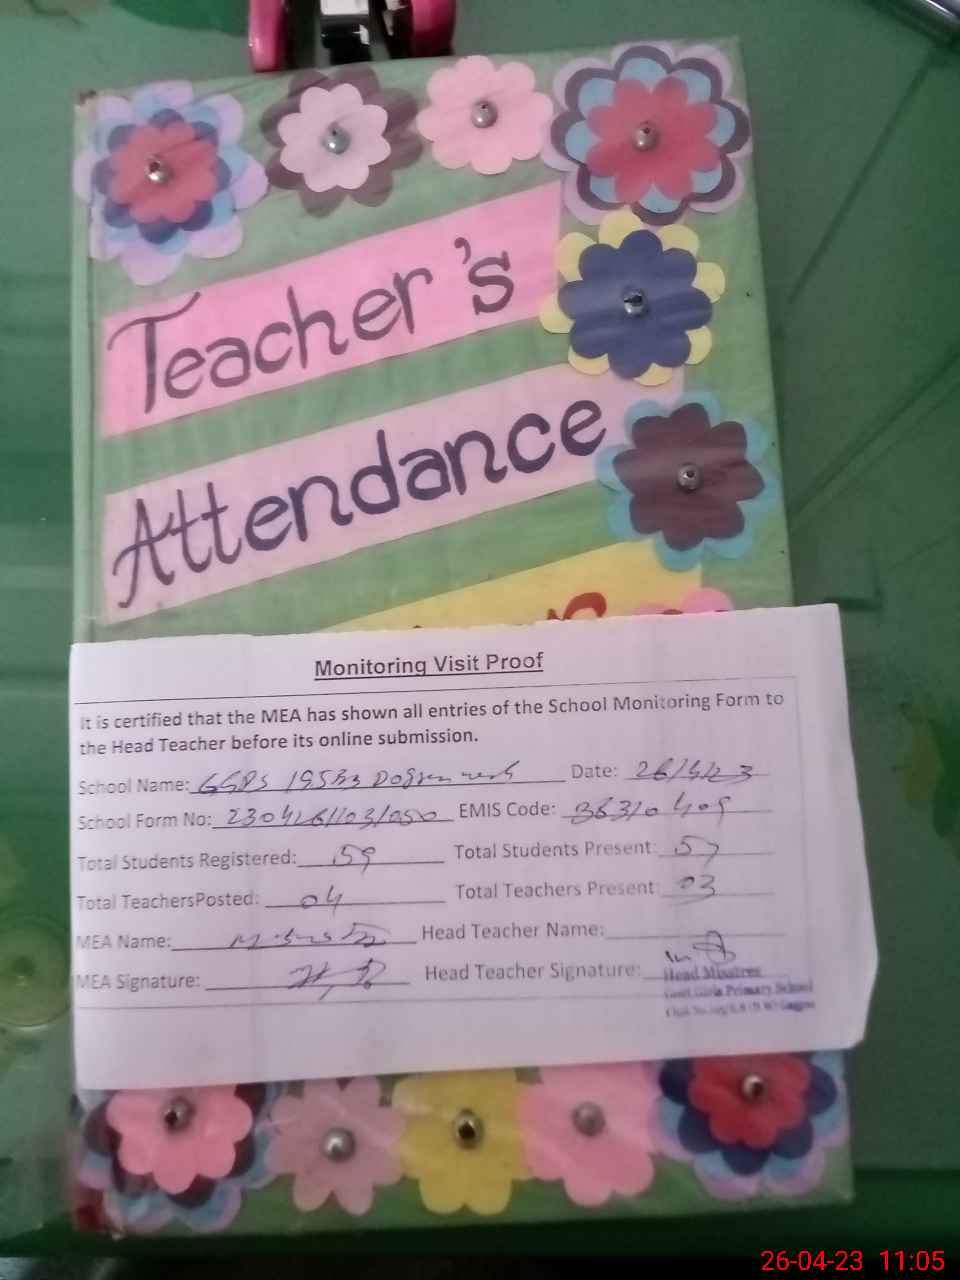 Teacher's
Attendance
Monitoring Visit Proof
It is certified that the MEA has shown all entries of the School Monitoring Form to
the Head Teacher before its online submission.
School Name: GGPS 195 Date: 26/4/23
School Form No: EMIS Code: 36310409
Total Students Registered: 59 Total Students Present: 57
Total TeachersPosted: 04 Total Teachers Present: 03
MEA Name: Head Teacher Name:
MEA Signature: Head Teacher Signature:
Head Mistress
Govt Girls Primary School
26-04-23 11:05